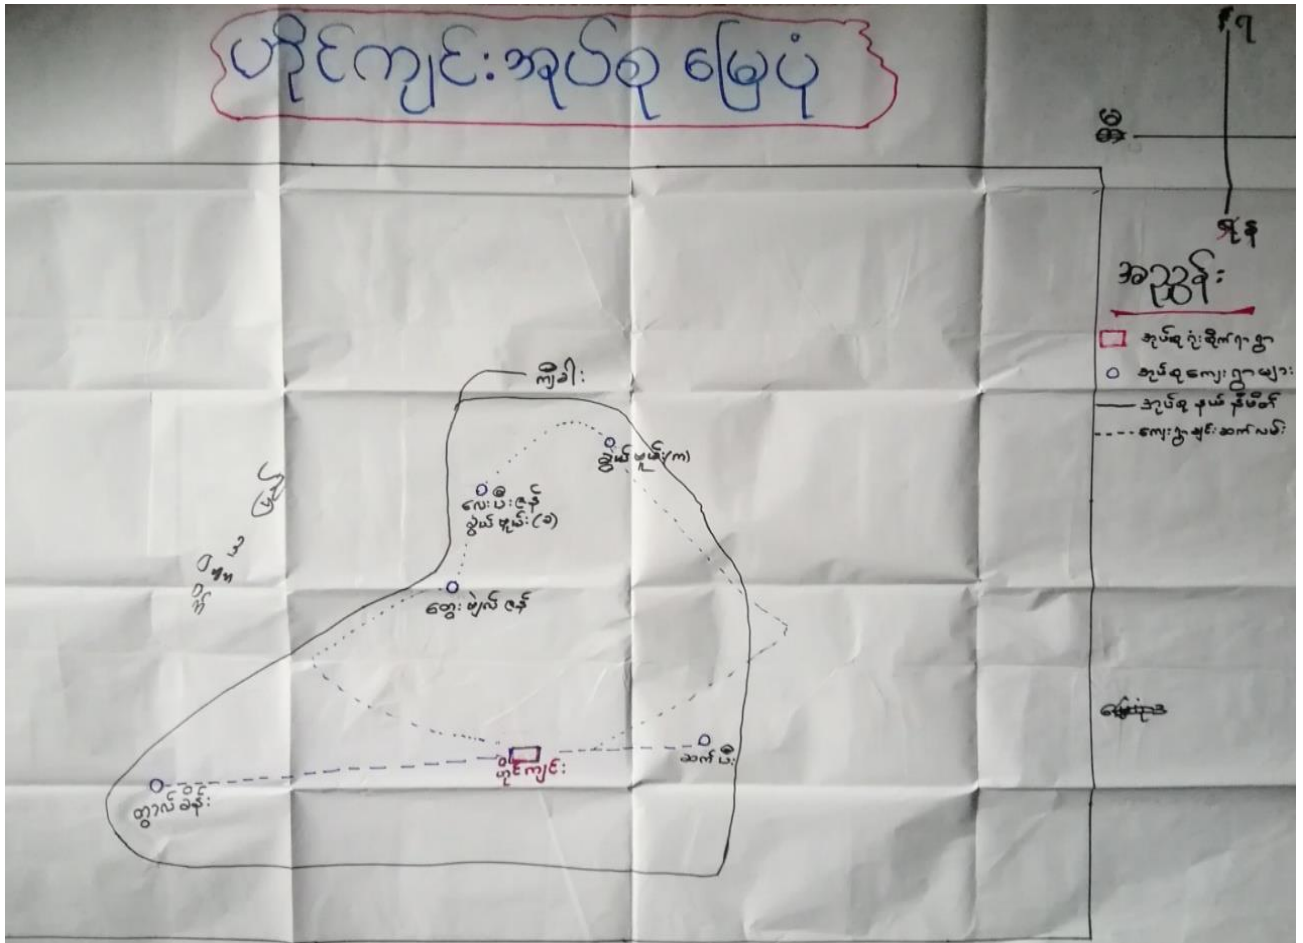 ဟိုင်ကျင်းအုပ်စု မြေပုံ
အညွှန်း
အုပ်စုရုံးစိုက်ရာရွာ
အုပ်စုကျေးရွာများ
အုပ်စုနယ်နိမိတ်
ကျေးရွာချင်းဆက်လမ်း
ကျီခါး
လွယ်မူယ်း(က)
လေးပီးဇန်
လွယ်မူယ်း(ခ)
ဟိုင်ကျင်း
ဆက်ပီး
တွာလ်ခိန်း